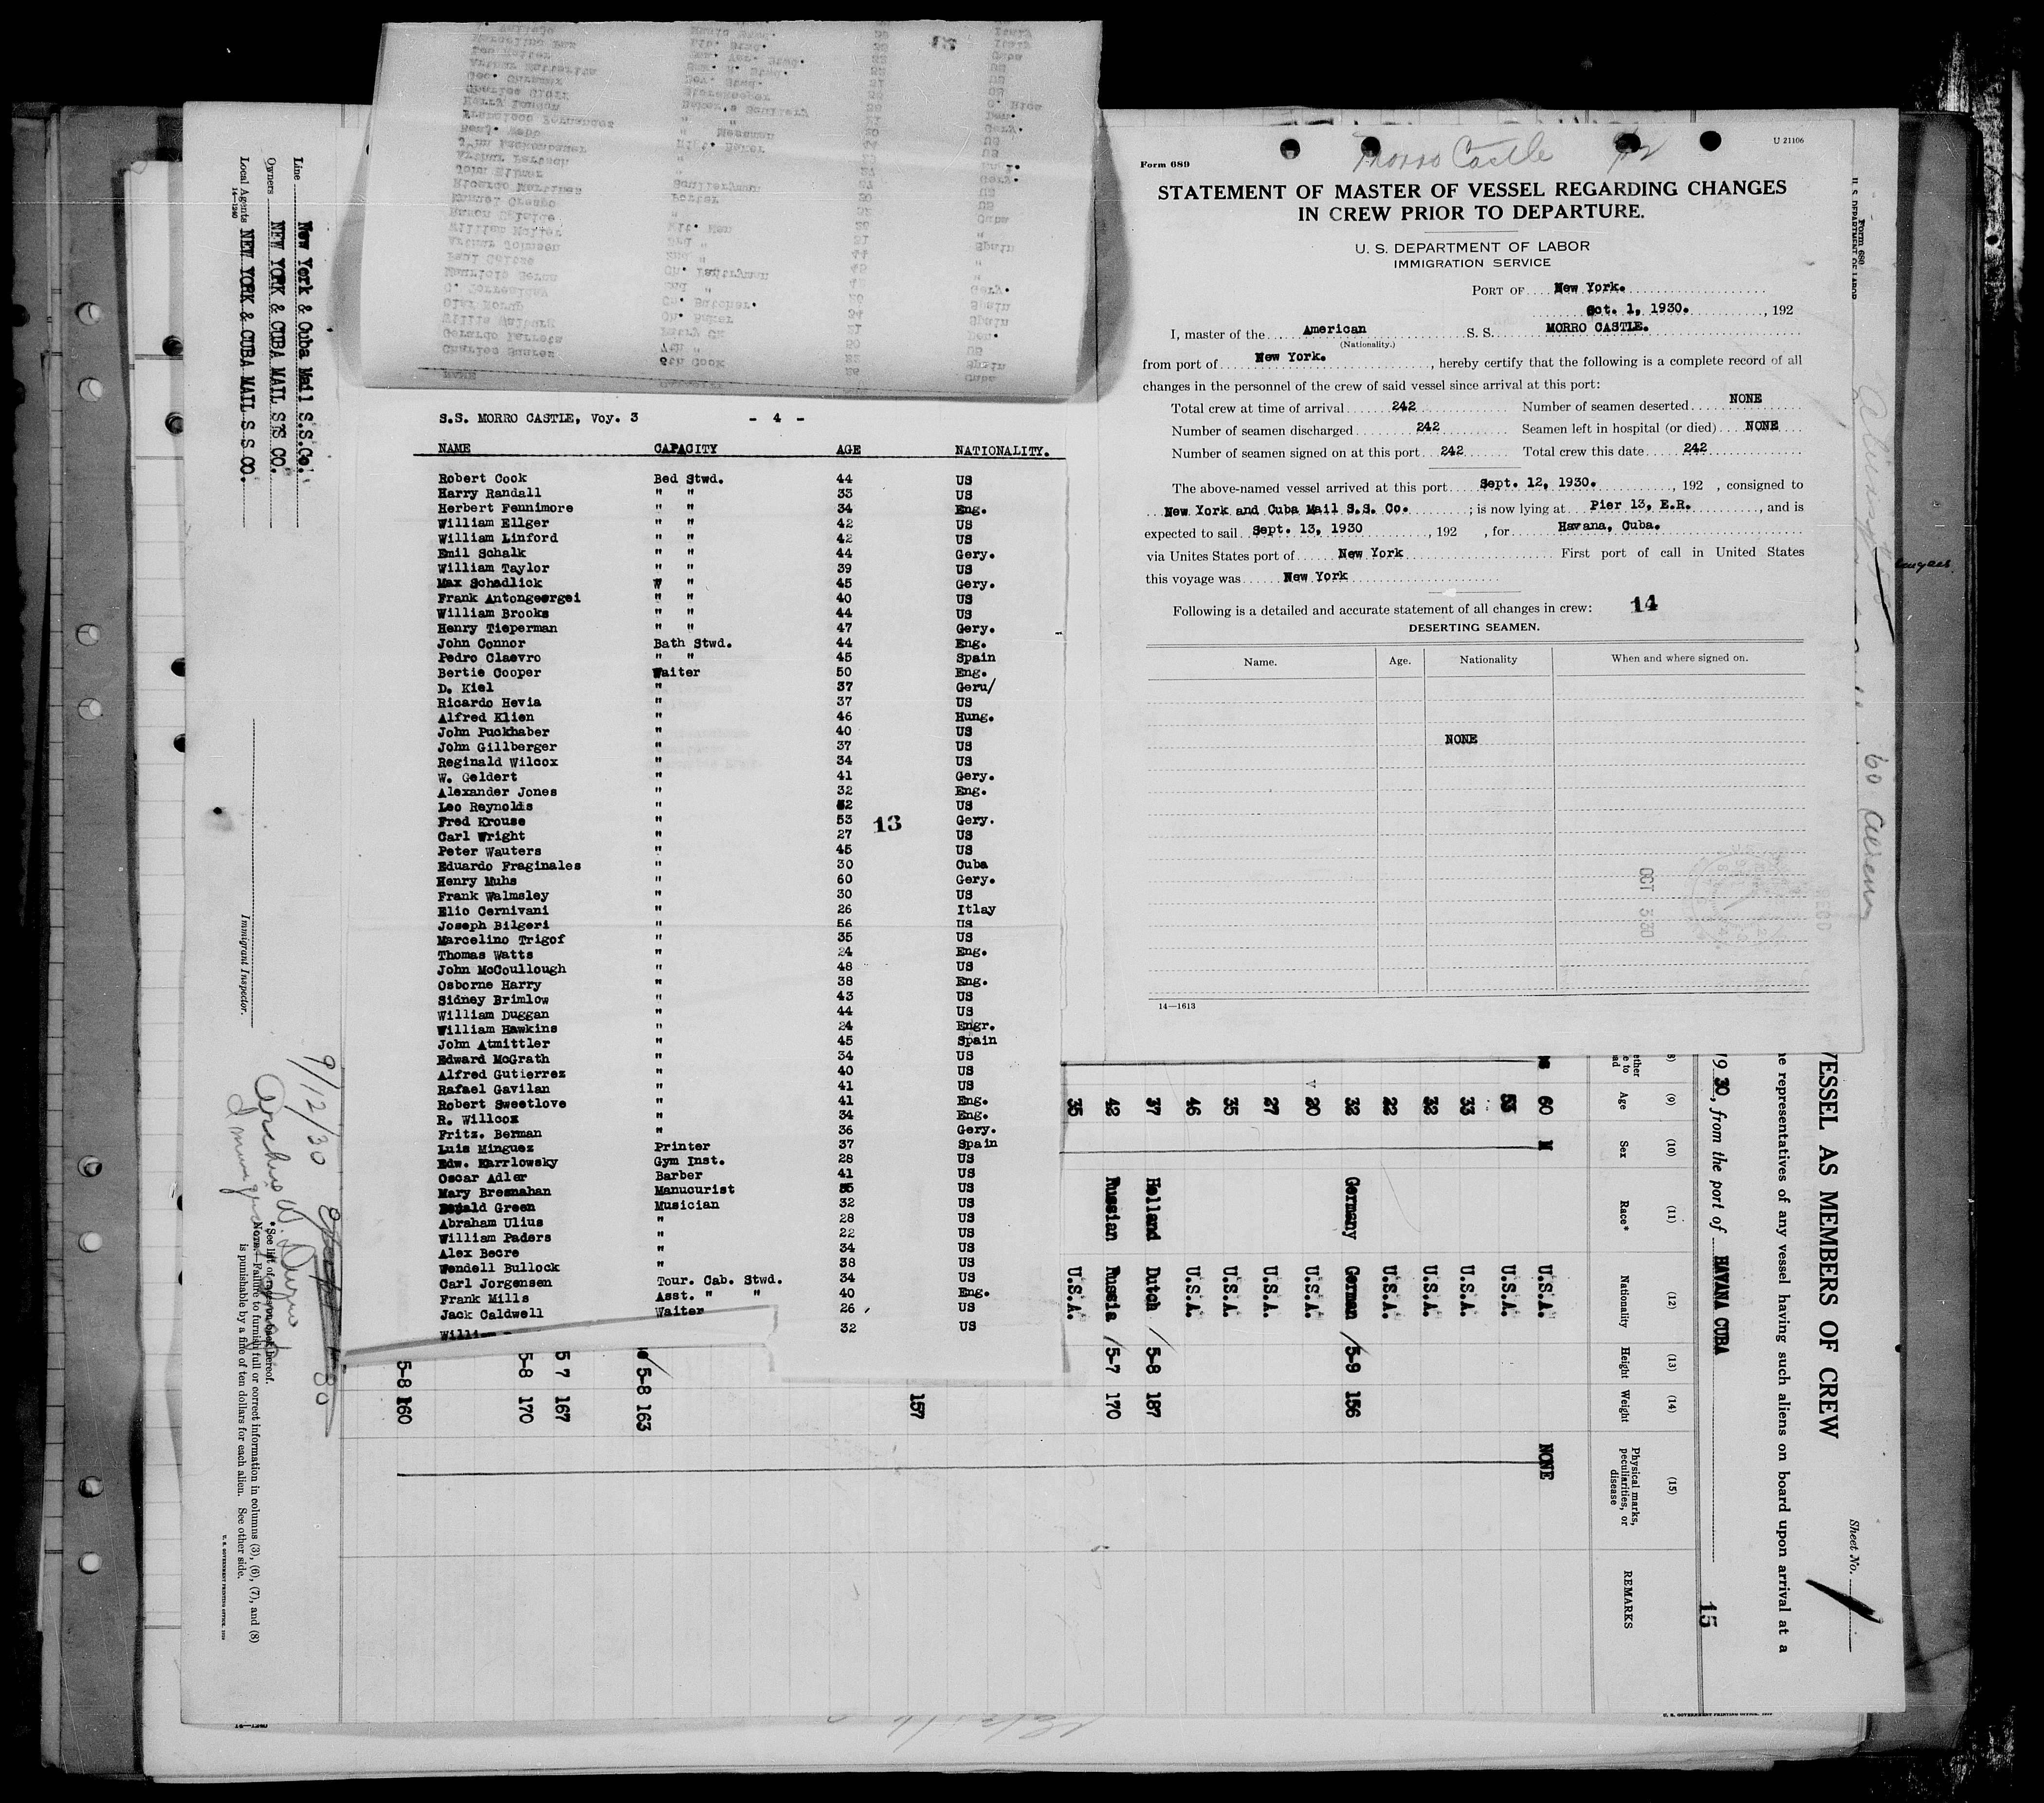 Line New York & Cuba Mail S.S.Co.
Owners NEW YORK & CUBA MAIL S?S CO.
Local Agents NEW YORK & CUBA MAIL S S CO.
14-1240
Immigrant Inspector.
9/12/30
*See list of races on back hereof.
NOTE.—Failure to furnish full or correct information in columns (3), (6), (7), and (8)
is punishable by a fine of ten dollars for each alien. See other side.
U. S. GOVERNMENT PRINTING OFFICE
S.S. MORRO CASTLE, Voy. 3 - 4 -
NAME CAPACITY AGE NATIONALITY.
Robert Cook Bed Stwd. 44 US
Harry Randall " " 33 US
Herbert Fennimore " " 34 Eng.
William Ellger " " 42 US
William Linford " " 42 US
Emil Schalk " " 44 Gery.
William Taylor " " 39 US
Max Schadlick W " 45 Gery.
Frank Antongeorgei " " 40 US
William Brooks " " 44 US
Henry Tieperman " " 47 Gery.
John Connor Bath Stwd. 44 Eng.
Pedro Claevro " " 45 Spain
Bertie Cooper Waiter 50 Eng.
D. Kiel " 37 Geru/
Ricardo Hevia " 37 US
Alfred Klien " 46 Hung.
John Puckhaber " 40 US
John Gillberger " 37 US
Reginald Wilcox " 34 US
W. Geldert " 41 Gery.
Alexander Jones " 32 Eng.
Leo Reynolds " 52 US
Fred Krouse " 53 Gery.
13
Carl Wright " 27 US
Peter Wauters " 45 US
Eduardo Fraginales " 30 Cuba
Henry Muhs " 60 Gery.
Frank Walmsley " 30 US
Elio Cernivani " 26 Itlay
Joseph Bilgeri " 56 US
Marcelino Trigof " 35 US
Thomas Watts " 24 Eng.
John McCoullough " 48 US
Osborne Harry " 38 Eng.
Sidney Brimlow " 43 US
William Duggan " 44 US
William Hawkins " 24 Engr.
John Atmittler " 45 Spain
Edward McGrath " 34 US
Alfred Gutierrez " 40 US
Rafael Gavilan " 41 US
Robert Sweetlove " 41 Eng.
R. Willcox " 34 Eng.
Fritz. Berman " 36 Gery.
Luis Minguez Printer 37 Spain
Edw. Karrlowsky Gym Inst. 28 US
Oscar Adler Barber 41 US
Mary Bresnahan Manucurist 35 US
Donald Green Musician 32 US
Abraham Ulius " 28 US
William Paders " 22 US
Alex Becre " 34 US
Wendell Bullock " 38 US
Carl Jorgensen Tour. Cab. Stwd. 34 US
Frank Mills Asst. " " 40 Eng.
Jack Caldwell Waiter 26 US
32 US
Morro Castle
U 21106
Form 689
STATEMENT OF MASTER OF VESSEL REGARDING CHANGES
IN CREW PRIOR TO DEPARTURE.
U. S. DEPARTMENT OF LABOR
IMMIGRATION SERVICE
PORT OF New York.
Oct. 1, 1930. , 192
I, master of the American S. S. MORRO CASTLE.
(Nationality.)
from port of New York. , hereby certify that the following is a complete record of all
changes in the personnel of the crew of said vessel since arrival at this port:
Total crew at time of arrival 242 Number of seamen deserted NONE
Number of seamen discharged 242 Seamen left in hospital (or died) NONE
Number of seamen signed on at this port 242 Total crew this date 242
The above-named vessel arrived at this port Sept. 12, 1930. , 192 , consigned to
New York and Cuba Mail S.S. Co. ; is now lying at Pier 13, E.R. , and is
expected to sail Sept. 13, 1930 , 192 , for Havana, Cuba.
via Unites States port of New York First port of call in United States
this voyage was New York
Following is a detailed and accurate statement of all changes in crew: 14
DESERTING SEAMEN.
Name. Age. Nationality When and where signed on.
NONE
OCT 3 30
14—1613
Form 689
60 aliens
VESSEL AS MEMBERS OF CREW
Sheet No. 1
representatives of any vessel having such aliens on board upon arrival at a
19 30, from the port of HAVANA CUBA
15
(9) (10) (11) (12) (13) (14) (15)
Age Sex Race* Nationality Height Weight Physical marks, peculiarities, or disease REMARKS
60 M U.S.A. NONE
53 U.S.A.
33 U.S.A.
32 U.S.A.
22 U.S.A.
32 Germany German 5-9 156
20 U.S.A.
27 U.S.A.
35 U.S.A.
46 U.S.A.
37 Holland Dutch 5-8 187
42 Russian Russia 5-7 170
35 U.S.A.
157
5-8 163
5 7 167
5-8 170
5-8 160